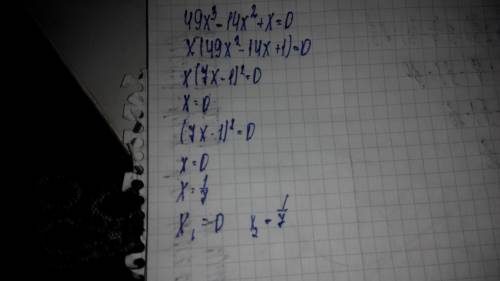 49x³-14x²+x=0
x(49x²-14x+1)=0
x(7x-1)²=0
x=0
(7x-1)²=0
x=0
x=1/7
x₁=0 x₂=1/7